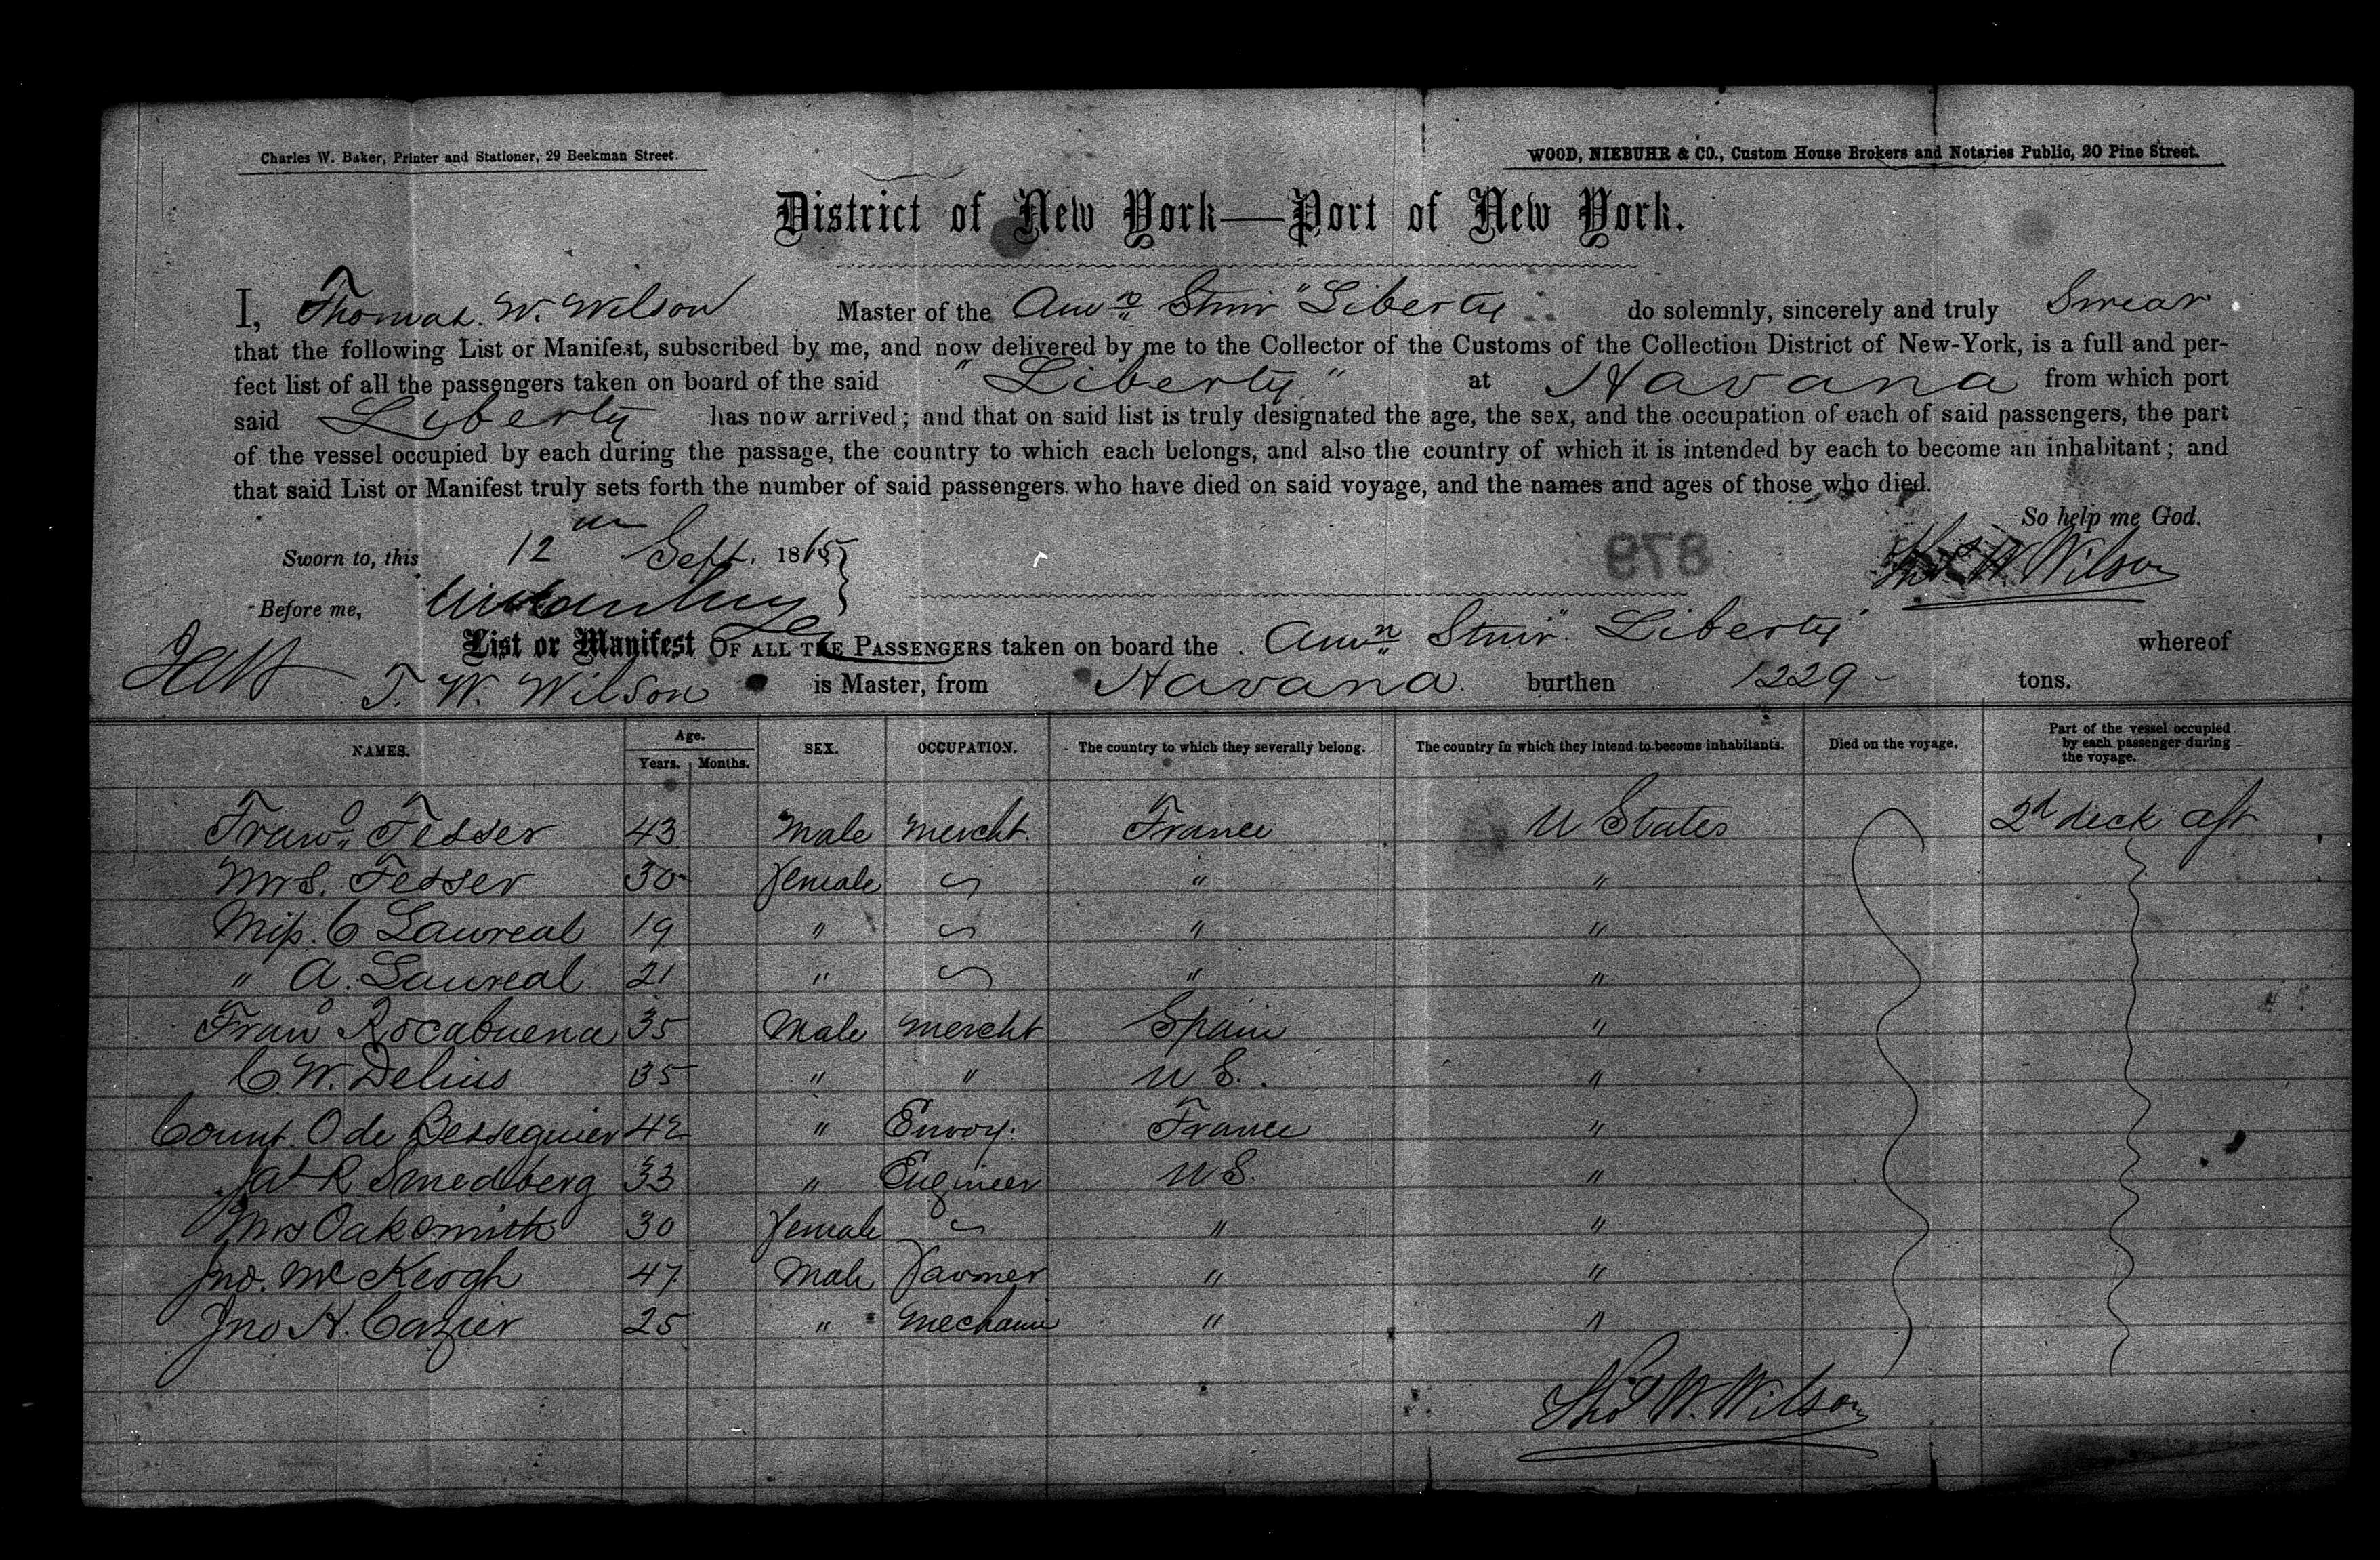 Charles W. Baker, Printer and Stationer, 29 Beekman Street.
WOOD, NIEBUHR & CO., Custom House Brokers and Notaries Public, 20 Pine Street.
District of New York—Port of New York.
I, Thomas. W. Wilson Master of the Amn Stmr "Liberty do solemnly, sincerely and truly Swear
that the following List or Manifest, subscribed by me, and now delivered by me to the Collector of the Customs of the Collection District of New-York, is a full and per-
fect list of all the passengers taken on board of the said "Liberty" at Havana from which port
said Liberty has now arrived; and that on said list is truly designated the age, the sex, and the occupation of each of said passengers, the part
of the vessel occupied by each during the passage, the country to which each belongs, and also the country of which it is intended by each to become an inhabitant; and
that said List or Manifest truly sets forth the number of said passengers who have died on said voyage, and the names and ages of those who died.
So help me God.
Sworn to, this 12 Sept. 1865
878
Thos W. Wilson
Before me,
List or Manifest OF ALL THE PASSENGERS taken on board the Amn Stmr "Liberty" whereof
T. W. Wilson is Master, from Havana. burthen 1229 - tons.
NAMES. Age. Years. Months. SEX. OCCUPATION. The country to which they severally belong. The country in which they intend to become inhabitants. Died on the voyage. Part of the vessel occupied by each passenger during the voyage.
Frano Fesser 43 Male Mercht. France U States 2d deck aft
Mrs. Fesser 30 Female " "
Miss. C Laureal 19 " " "
" A. Laureal 21 " " "
Frano Rocabuena 35 Male Mercht Spain "
C. W. Delius 35 " " U S. "
Count. O de Besseguier 42 " Envoy. France "
Jas R Smedberg 33 " Engineer U S. "
Mrs Oaksmith 30 Female " "
Jno. Mc Keogh 47 Male Farmer " "
Jno H. Cazier 25 " Mechanic " "
Thos W. Wilson